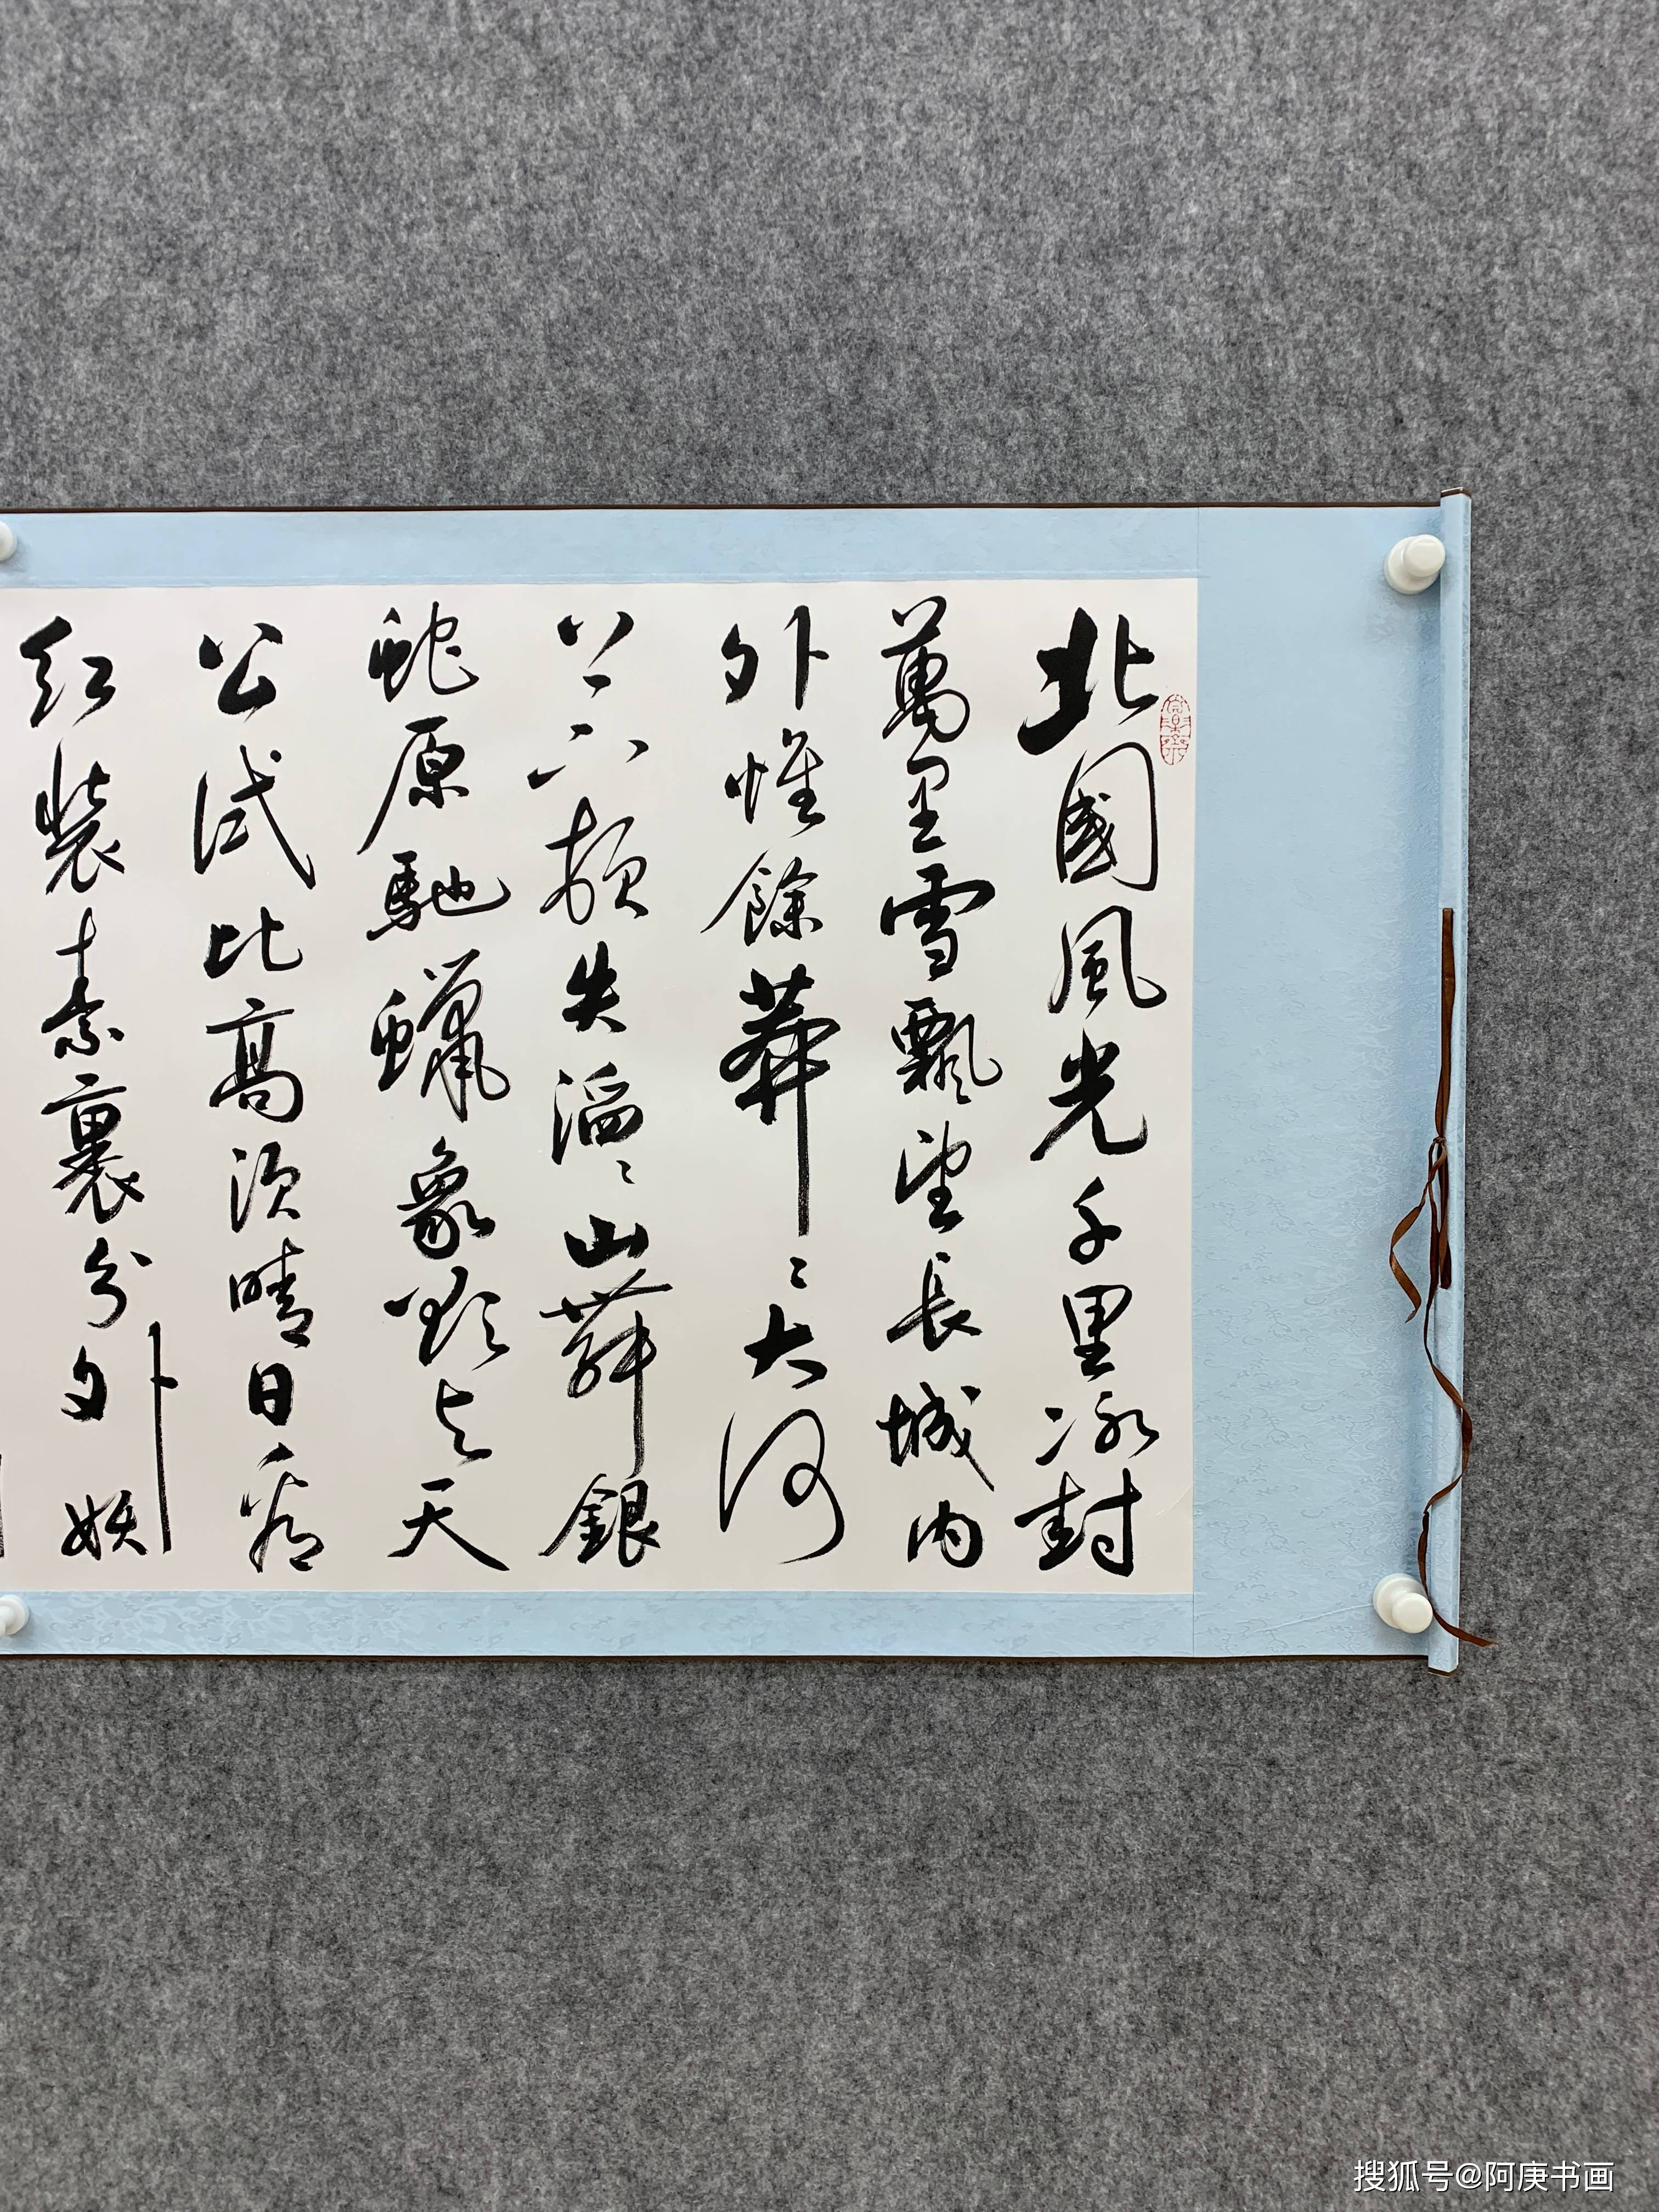 北國風光千里冰封
萬里雪飄望長城内
外惟餘莽〻大河
上下頓失滔〻山舞銀
蛇原馳蠟象欲与天
公試比高須晴日看
红裝素裹分外妖
搜狐号@阿庚书画